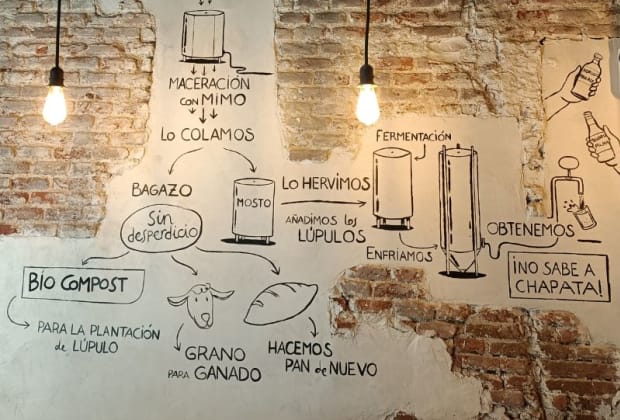 MACERACIÓN
CON MIMO
LO COLAMOS
BAGAZO
Sin
desperdicio
BIO COMPOST
PARA LA PLANTACIÓN
de LÚPULO
GRANO
PARA GANADO
HACEMOS
PAN de NUEVO
MOSTO
LO HERVIMOS
AÑADIMOS LOS
LÚPULOS
FERMENTACIÓN
ENFRÍAMOS
OBTENEMOS
¡NO SABE A
CHAPATA!